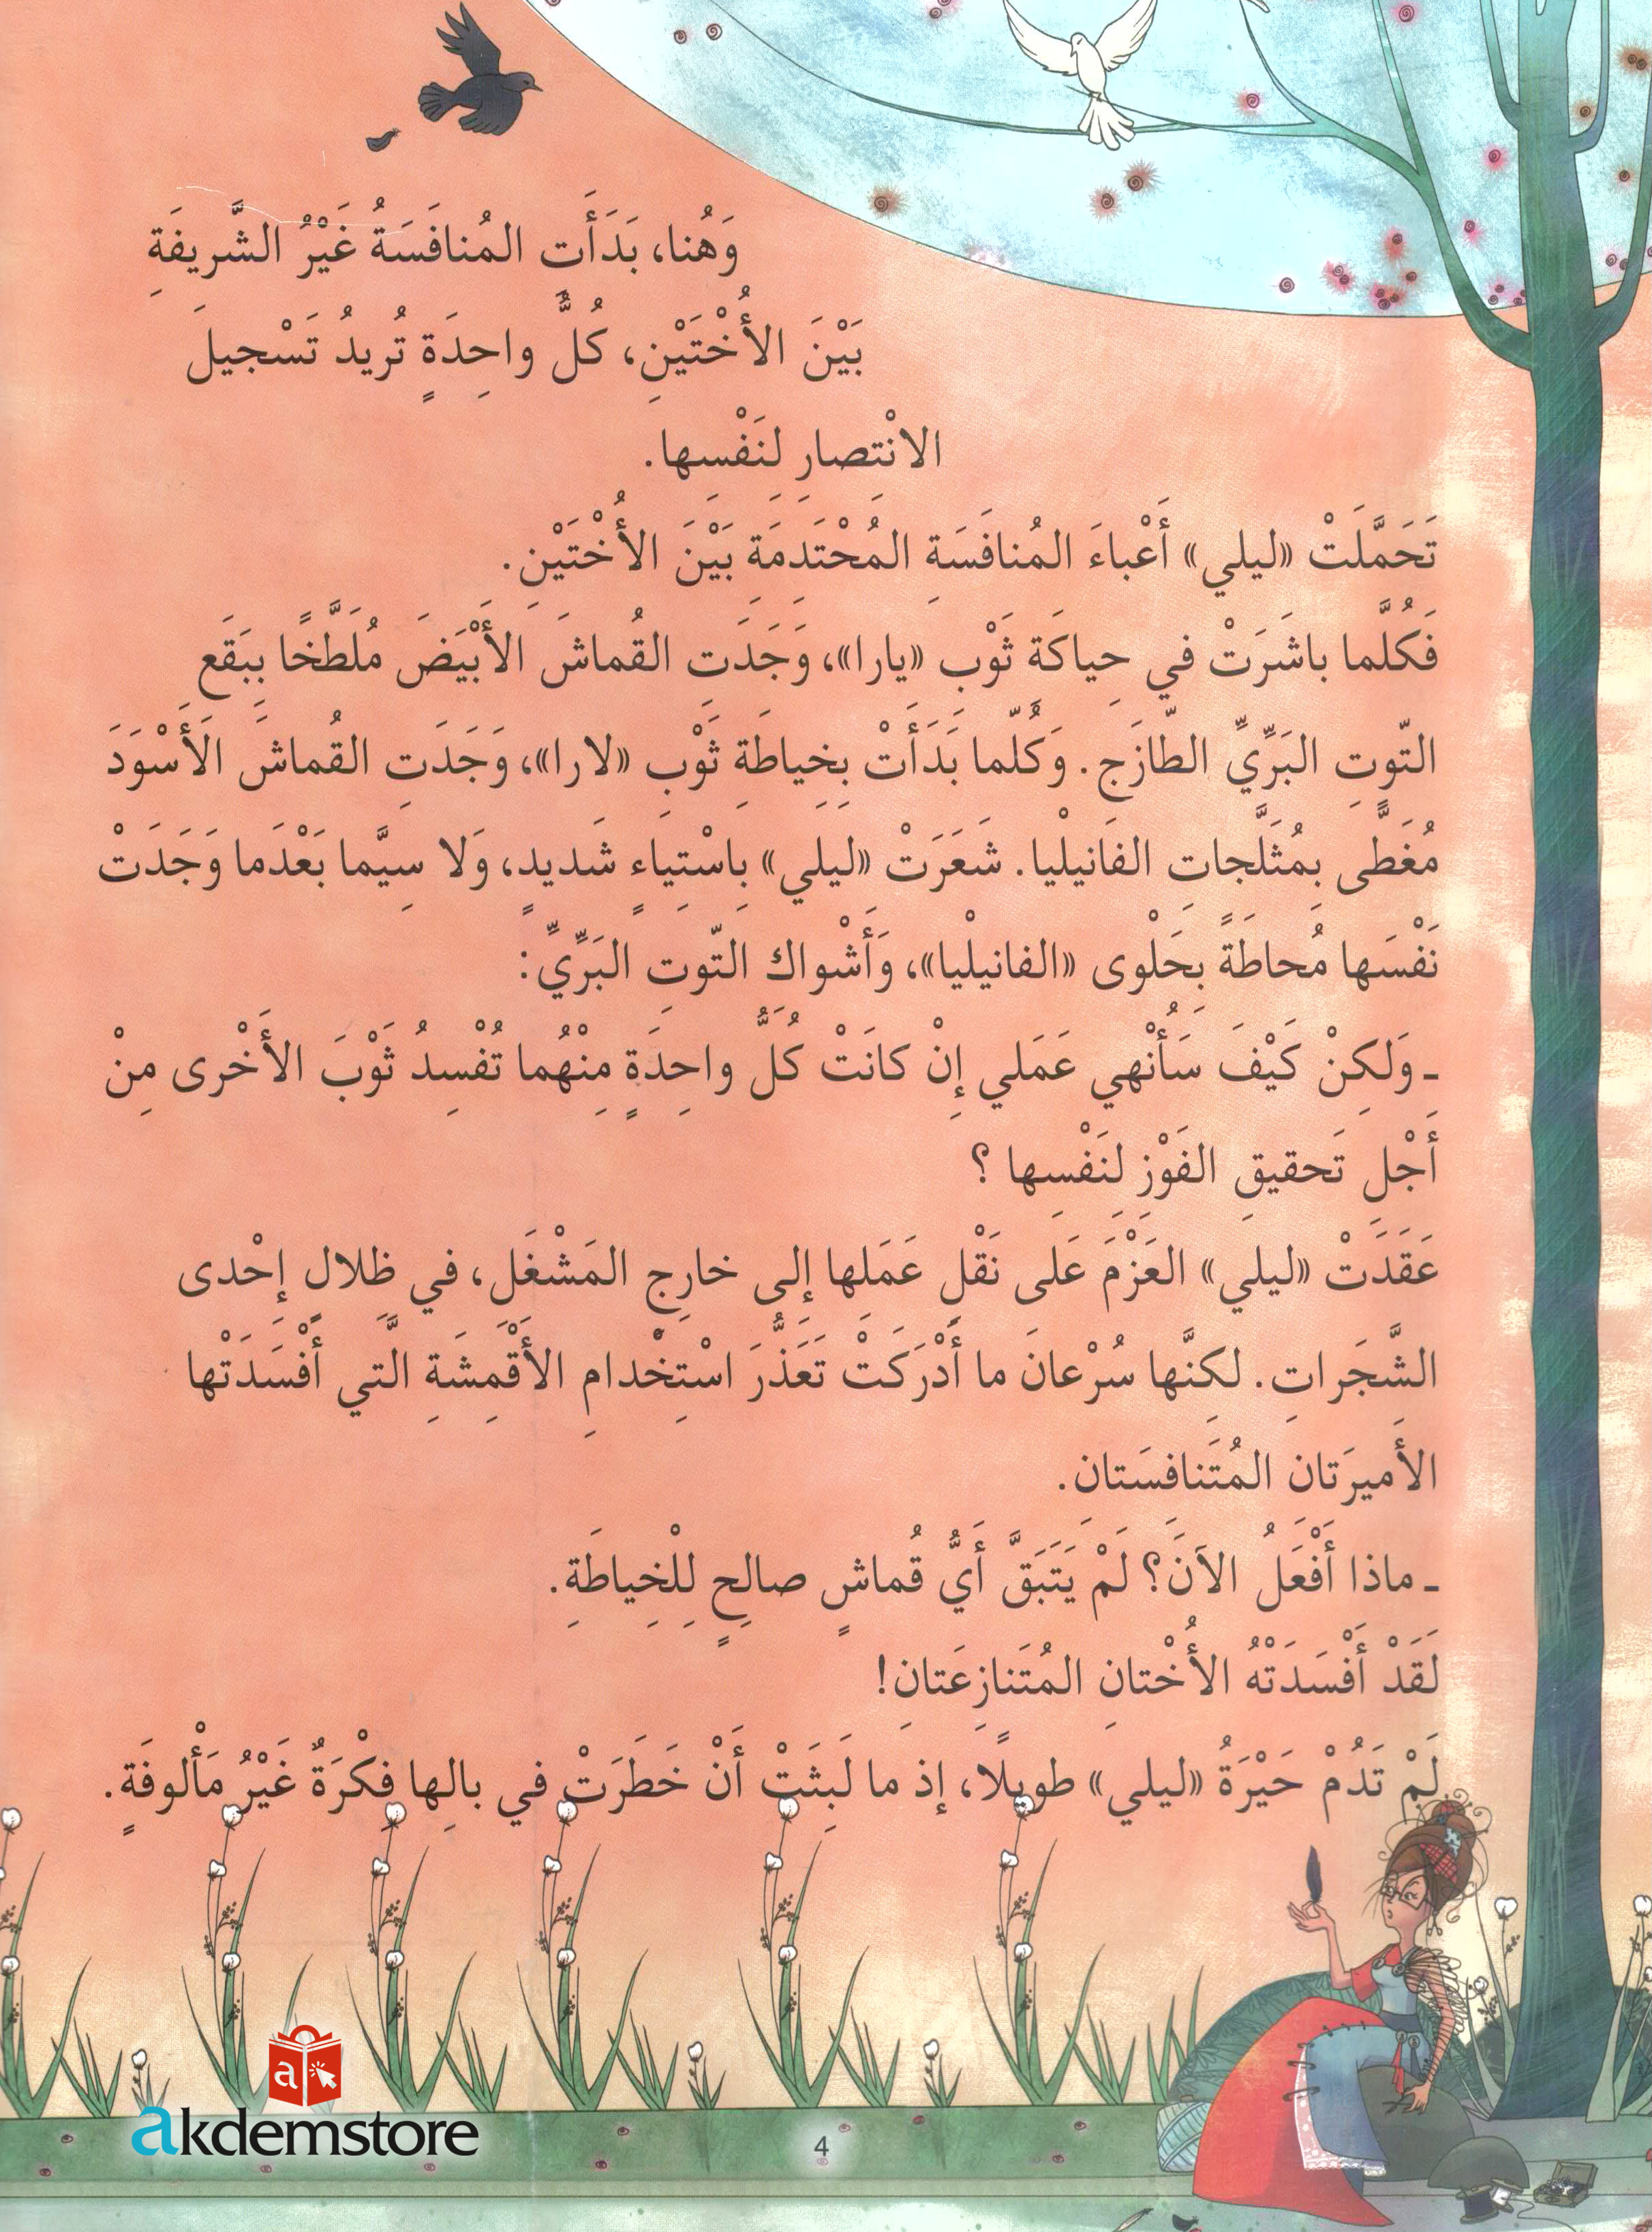 وَهُنا، بَدَأَتِ المُنافَسَةُ غَيْرُ الشَّريفَةِ
بَيْنَ الأُخْتَيْنِ، كُلُّ واحِدَةٍ تُريدُ تَسْجيلَ
الانْتصار لنَفْسها.
تَحَمَّلَتْ «ليلي» أَعْباءَ المُنافَسَةِ المُحْتَدمَة بَيْنَ الأُخْتَيْن.
فَكُلَّما باشَرَتْ في حِياكَةِ ثَوْبِ «يارا»، وَجَدَت القُماشَ الأَبْيَضَ مُلَطَّخًا بِبَقَعِ
التّوتِ البَرِّيِّ الطّازَجِ. وَكُلّما بَدَأَتْ بِخِياطَةِ ثَوْبِ «لارا»، وَجَدَتِ القُماشَ الأَسْوَدَ
مُغَطًّى بِمُثَلَّجاتِ الفَانيلْيا. شَعَرَتْ «ليلي» بِاسْتِياءٍ شَديدٍ، وَلا سِيَّما بَعْدَما وَجَدَتْ
نَفْسَها مُحاطَةً بِحَلْوى «الفانيلْيا»، وَأَشْواك التّوتِ البَرِّيِّ:
ـ وَلكِنْ كَيْفَ سَأُنْهي عَمَلي إِنْ كانَتْ كُلُّ واحِدَةٍ مِنْهُما تُفْسِدُ ثَوْبَ الأُخْرى مِنْ
أَجْلِ تَحقيقِ الفَوْزِ لِنَفْسِها ؟
عَقَدَتْ «ليلي» العَزْمَ عَلى نَقْلِ عَمَلها إلى خارِجِ المَشْغَلِ، في ظلالِ إحْدى
الشَّجَراتِ. لكِنَّها سُرْعانَ ما أَدْرَكَتْ تَعَذُّرَ اسْتِخْدامِ الأَقْمِشَةِ الَّتي أَفْسَدَتْها
الأَميرَتان المُتَنافسَتان.
ـ ماذا أَفْعَلُ الآنَ؟ لَمْ يَتَبَقَّ أَيُّ قُماشٍ صالِحٍ لِلْخِياطَةِ.
لَقَدْ أَفْسَدَتْهُ الأُخْتانِ المُتَنازِعَتانِ!
لَمْ تَدُمْ حَيْرَةُ «ليلي» طويلًا، إذ ما لَبِثَتْ أَنْ خَطَرَتْ في بالِها فِكْرَةٌ غَيْرُ مَأْلوفَةٍ.
akdemstore
4